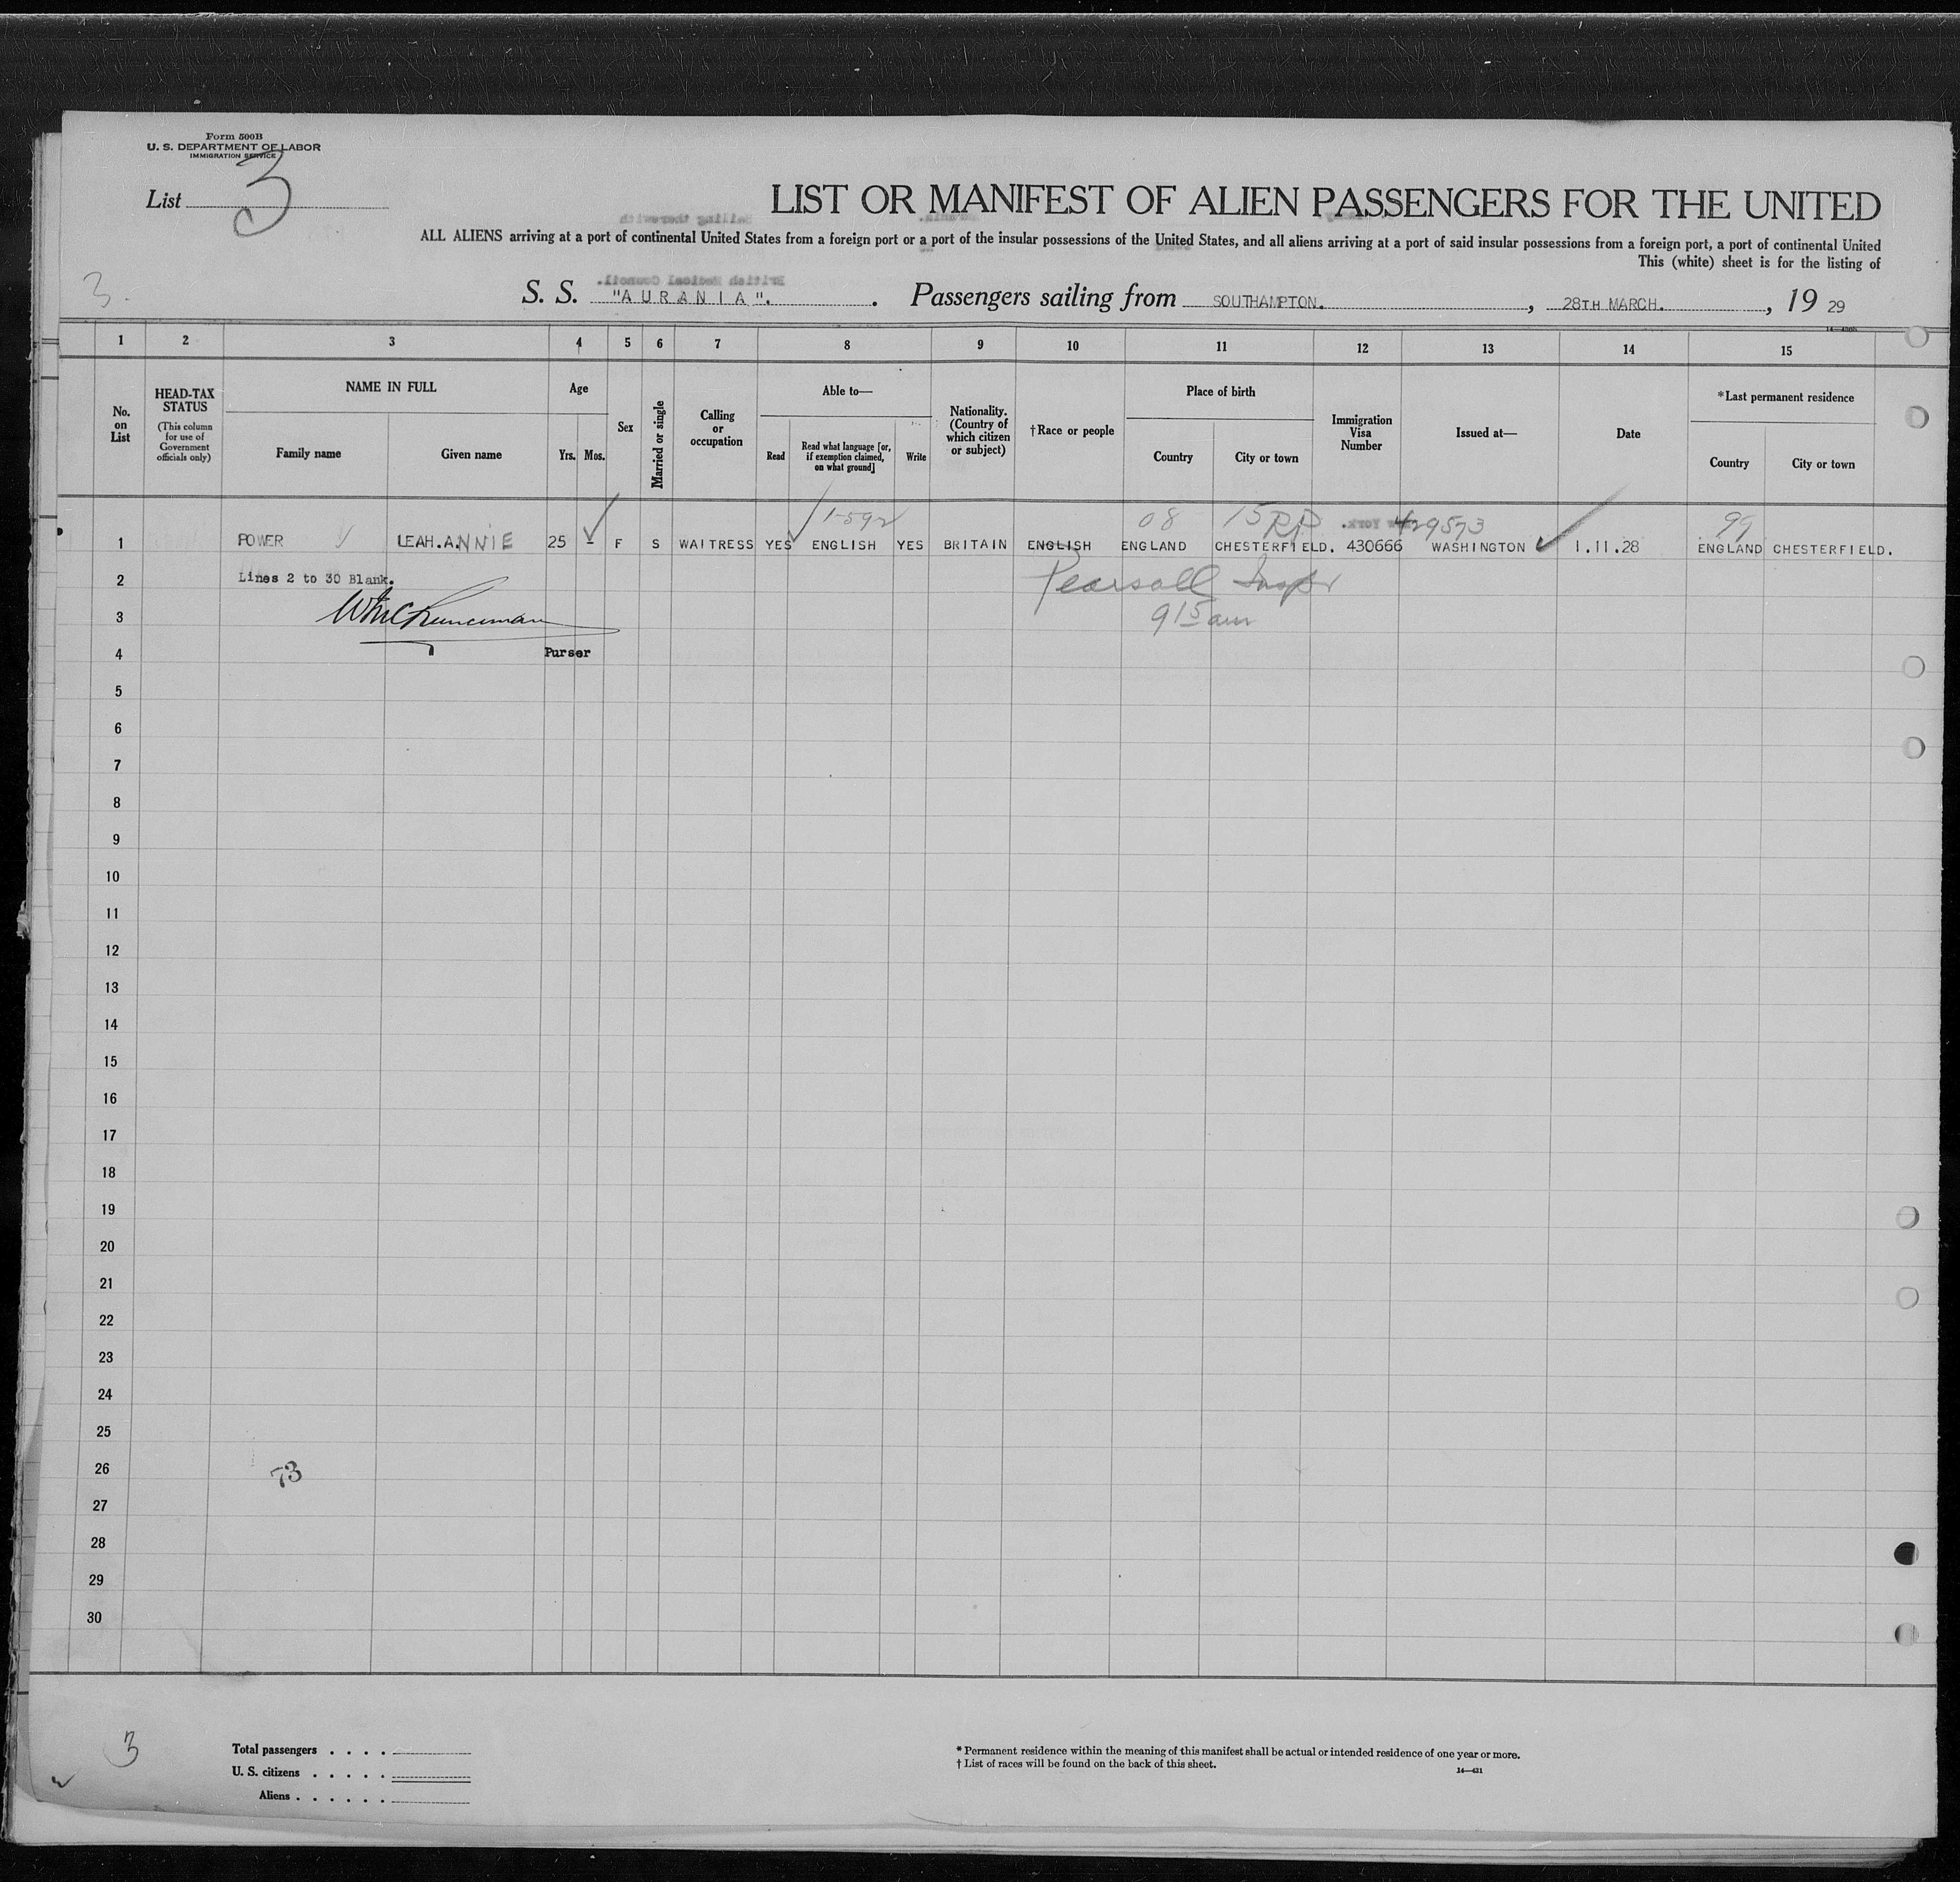 Form 500B
U. S. DEPARTMENT OF LABOR
IMMIGRATION SERVICE
List 3
LIST OR MANIFEST OF ALIEN PASSENGERS FOR THE UNITED
ALL ALIENS arriving at a port of continental United States from a foreign port or a port of the insular possessions of the United States, and all aliens arriving at a port of said insular possessions from a foreign port, a port of continental United
This (white) sheet is for the listing of
3.
S. S. "AURANIA". . Passengers sailing from SOUTHAMPTON. , 28TH MARCH. , 19 29
1 2 3 4 5 6 7 8 9 10 11 12 13 14 15
No. on List
HEAD-TAX STATUS
(This column for use of Government officials only)
NAME IN FULL
Family name
Given name
Age
Yrs. Mos.
Sex
Married or single
Calling or occupation
Able to—
Read
Read what language [or, if exemption claimed, on what ground]
Write
Nationality. (Country of which citizen or subject)
†Race or people
Place of birth
Country
City or town
Immigration Visa Number
Issued at—
Date
*Last permanent residence
Country
City or town
08 429573 99
1 POWER LEAH.ANNIE 25 - F S WAITRESS YES ENGLISH YES BRITAIN ENGLISH ENGLAND CHESTERFIELD. 430666 WASHINGTON 1.11.28 ENGLAND CHESTERFIELD.
2 Lines 2 to 30 Blank. Pearsall Inspr
3 915 am
4 Purser
5
6
7
8
9
10
11
12
13
14
15
16
17
18
19
20
21
22
23
24
25
26 73
27
28
29
30
3
Total passengers . . . .
U. S. citizens . . . . .
Aliens . . . . . .
* Permanent residence within the meaning of this manifest shall be actual or intended residence of one year or more.
† List of races will be found on the back of this sheet.
14—431